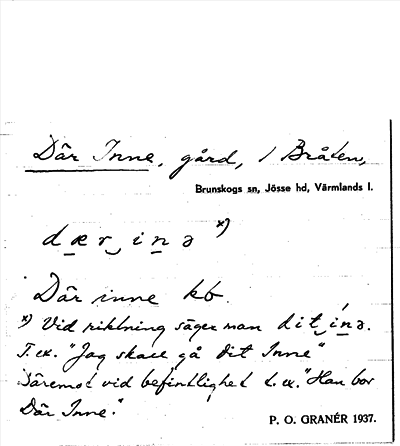 Där Inne, gård, 1 Bråten,
Brunskogs sn, Jösse hd, Värmlands l.
dær inə x)
Där inne kb.
x) Vid riktning säger man dit inə.
T. ex. "Jag skall gå dit Inne"
Däremot vid befintlighet t. ex. "Han bor
Där Inne."
P. O. GRANÉR 1937.